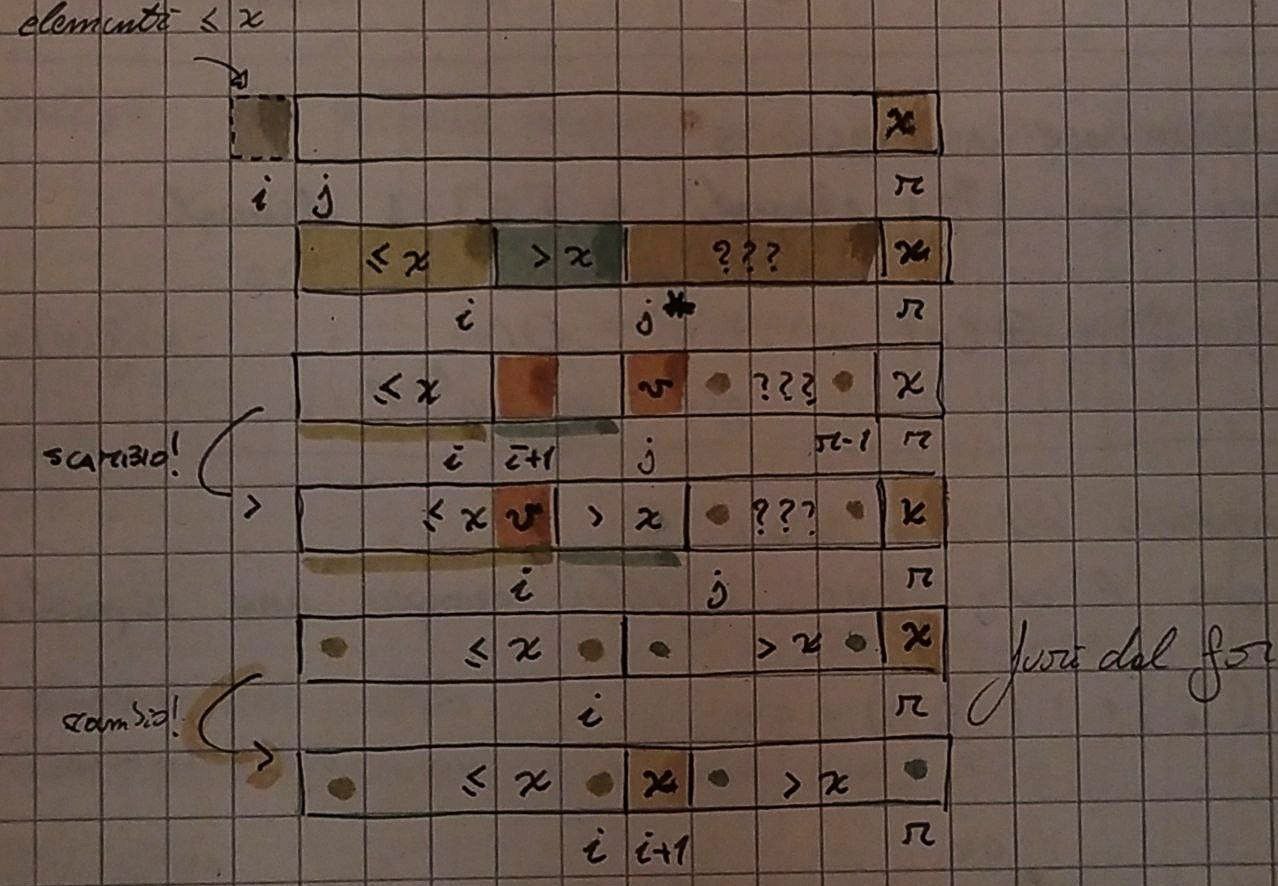 elementi ≤ x
x
i j r
≤ x > x ??? x
i j r
≤ x v ??? x
scambio! i i+1 j r-1 r
≤ x v > x ??? x
i j r
≤ x > x x
fuori dal for
scambio! i r
≤ x x > x
i i+1 r